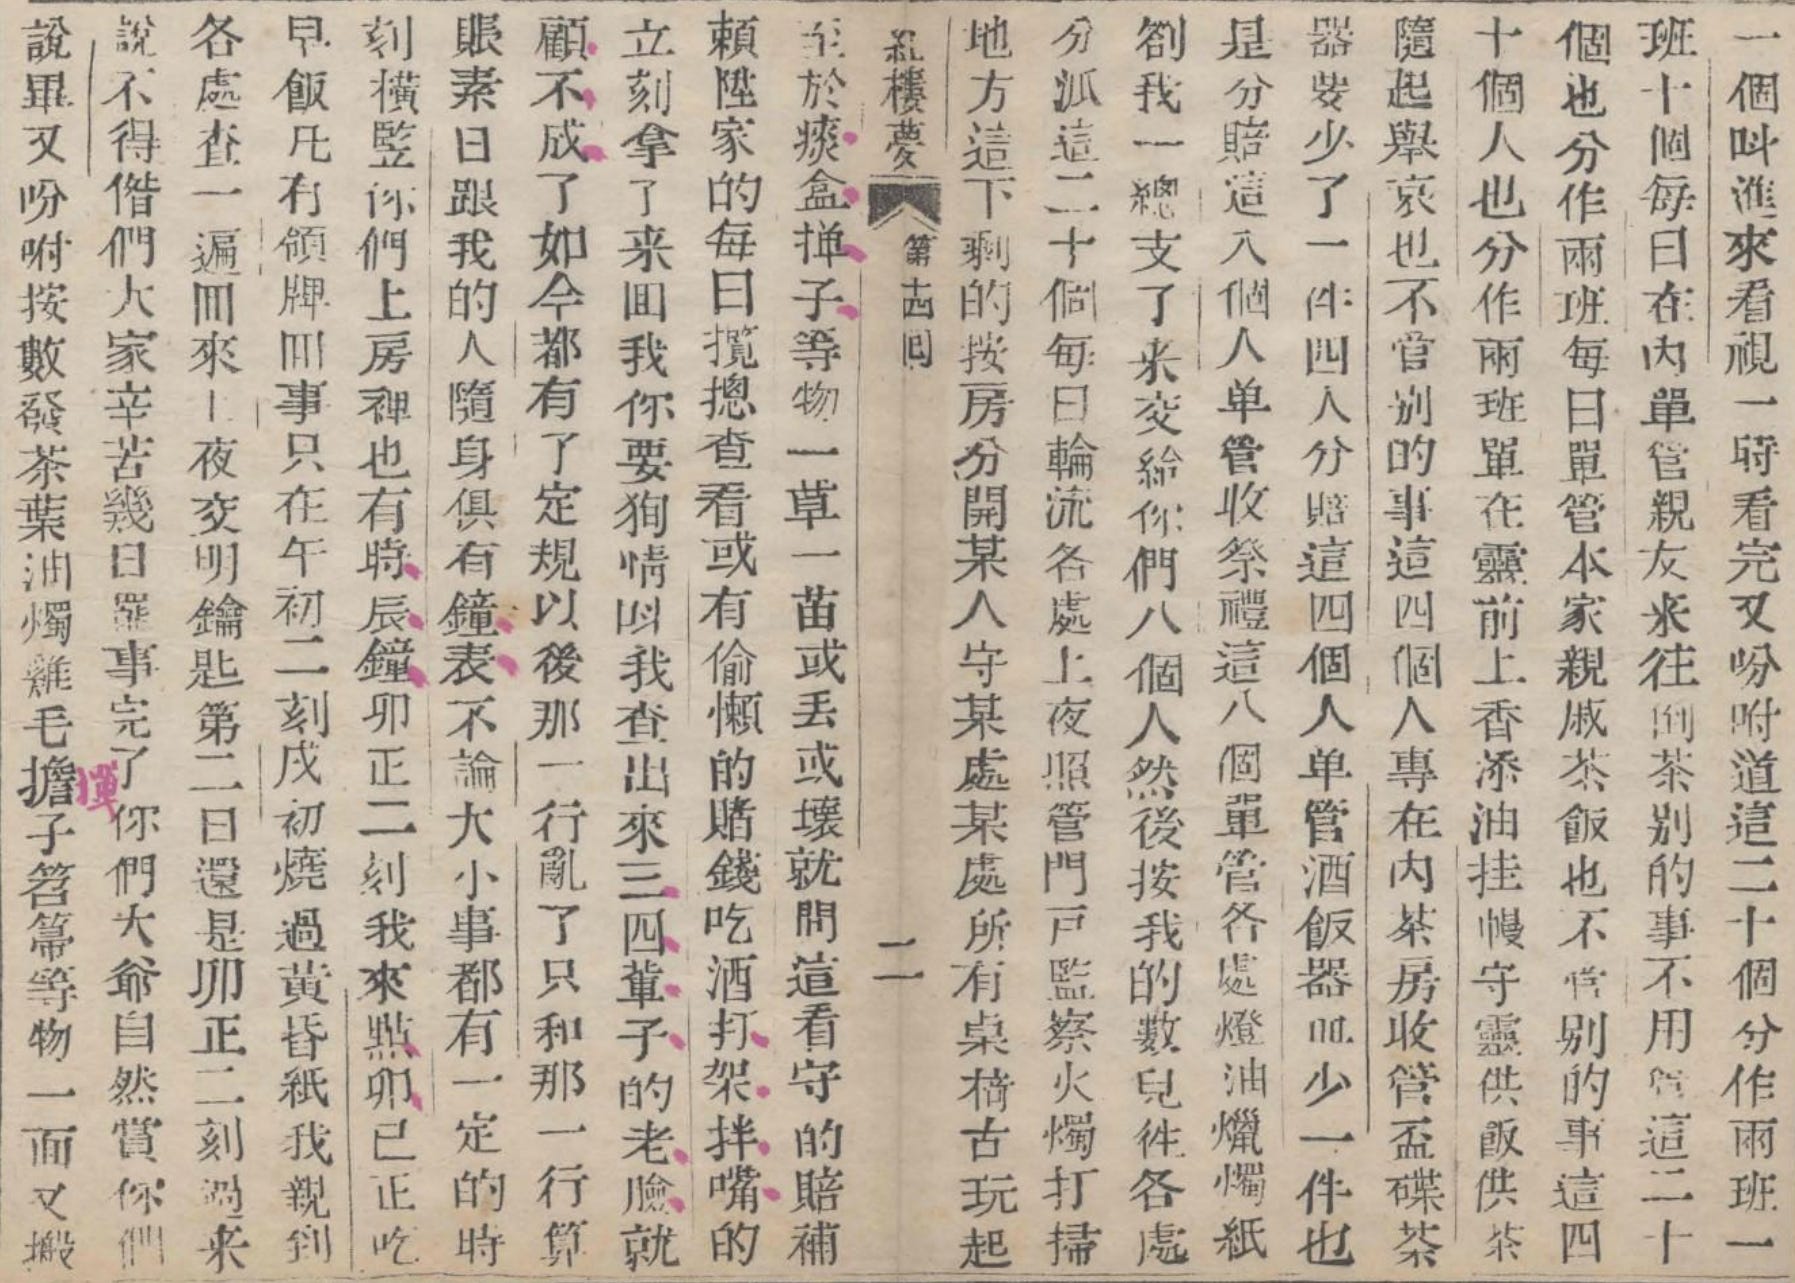 一個叫進來看視一時看完又吩咐道這二十個分作兩班一
班十個每日在內單管親友来往倒茶别的事不用管這二十
個也分作兩班每日單管本家親戚茶飯也不管别的事這四
十個人也分作兩班單在靈前上香添油挂幔守靈供飯供茶
隨起舉哀也不管别的事這四個人專在內茶房收管盃碟茶
器要少了一件四人分賠這四個人单管酒飯器皿少一件也
是分賠這八個人单管收祭禮這八個單管各處燈油蠟燭紙
劄我一總支了来交給你們八個人然後按我的數兒徃各處
分派這二十個每日輪流各處上夜照管門戸監察火燭打掃
地方這下剩的按房分開某人守某處某處所有桌椅古玩起
紅樓夢 第十四囘 二
至於痰盒撣子等物一草一苗或丢或壞就問這看守的賠補
頼陞家的每日攬摠查看或有偷懶的賭錢吃酒打架拌嘴的
立刻拿了来囬我你要狥情叫我查出來三四輩子的老臉就
顧不成了如今都有了定規以後那一行亂了只和那一行算
賬素日跟我的人隨身俱有鐘表不論大小事都有一定的時
刻橫竪你們上房裡也有時辰鐘卯正二刻我來點卯巳正吃
早飯凡有領牌囬事只在午初二刻戌初燒過黄昏紙我親到
各處查一遍囬來上夜交明鑰匙第二日還是卯正二刻過来
說不得偺們大家辛苦幾日罷事完了你們大爺自然賞你們
說畢又吩咐按數發茶葉油燭雞毛擔子笤箒等物一面又搬
撣